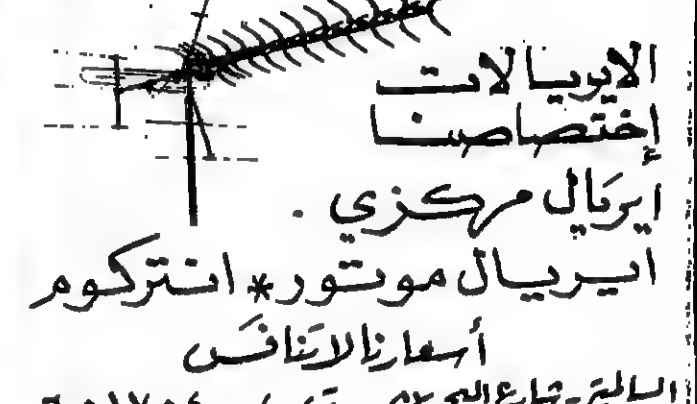 الايريالات
إختصاصنا
ايريال مركزي .
ايريال موتور * انتركوم
أسعارنا لا تنافس
السالمية - شارع